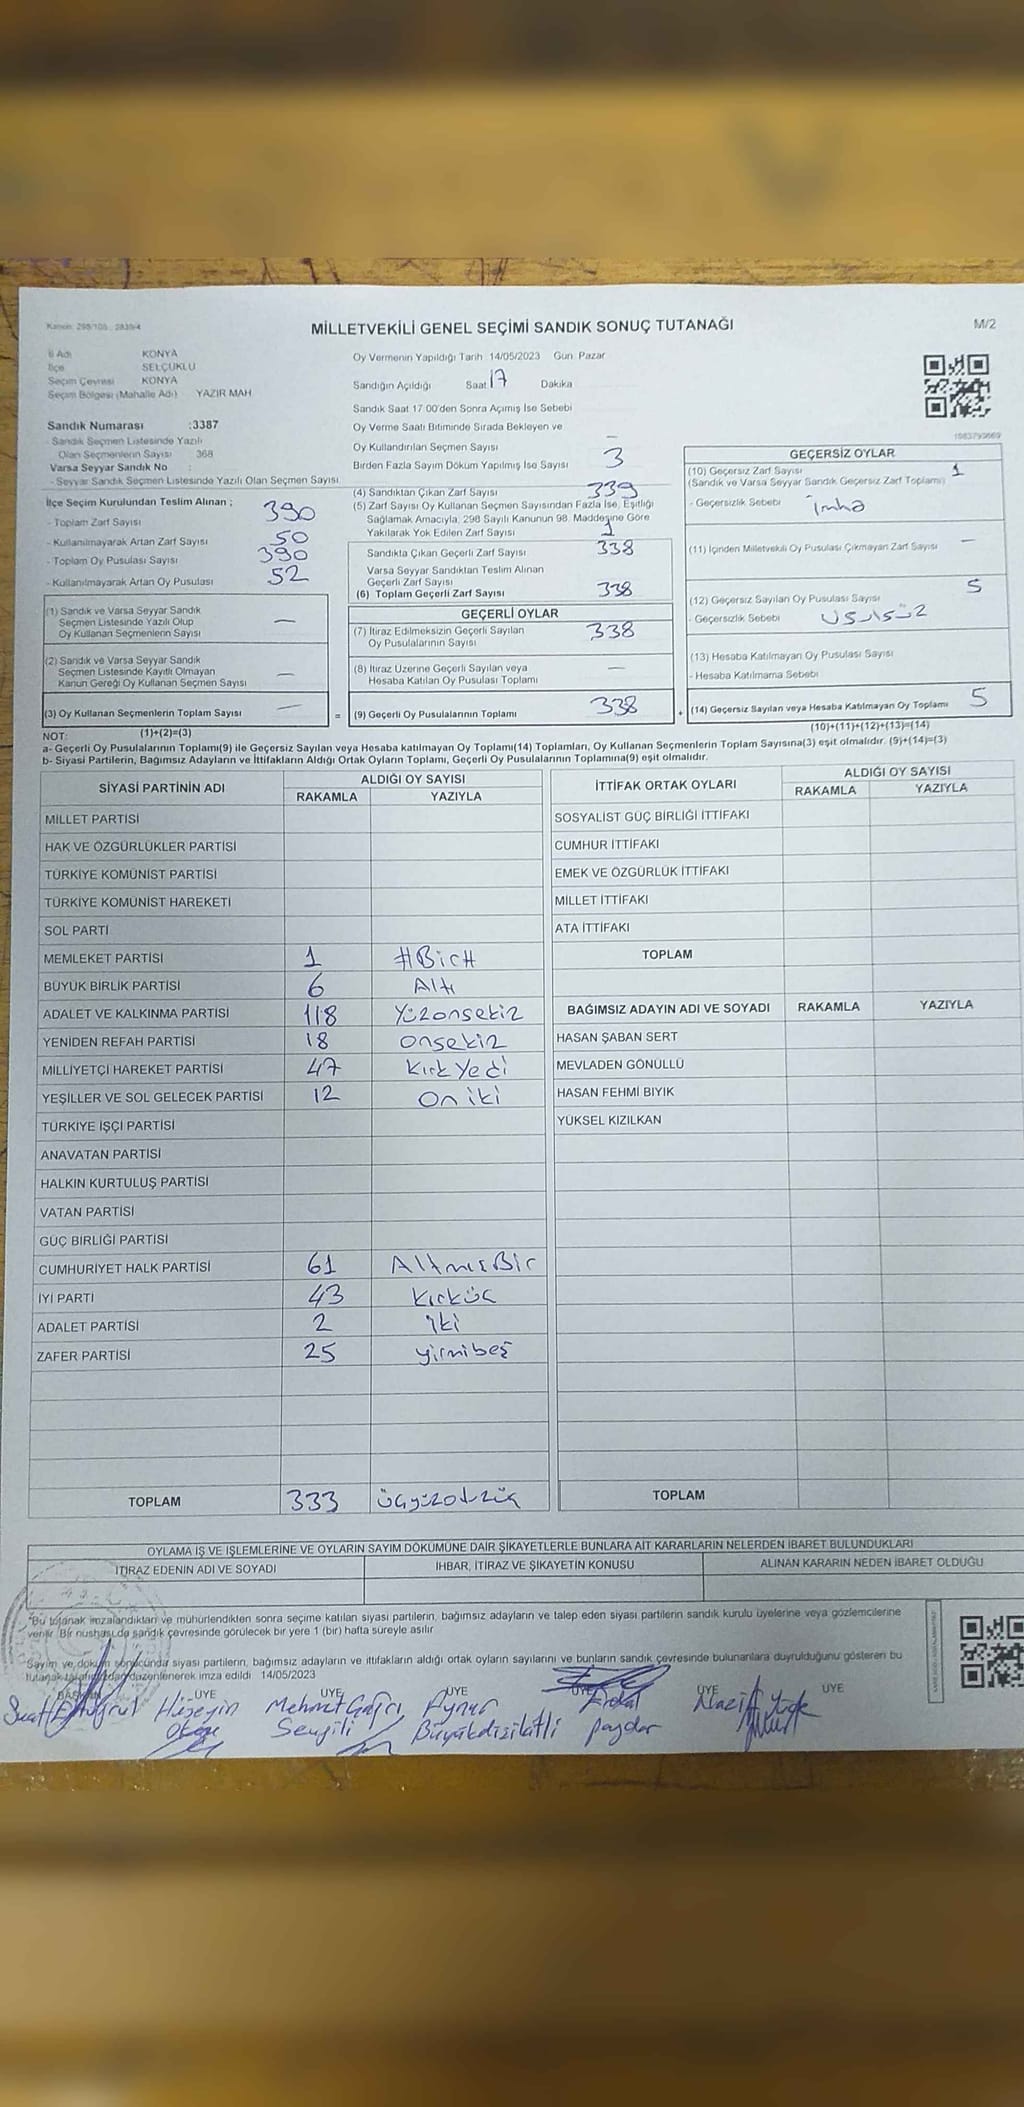 Kanun: 298/105 , 2839/4
MİLLETVEKİLİ GENEL SEÇİMİ SANDIK SONUÇ TUTANAĞI
M/2
İl Adı KONYA
İlçe SELÇUKLU
Seçim Çevresi KONYA
Seçim Bölgesi (Mahalle Adı) YAZIR MAH
Sandık Numarası :3387
- Sandık Seçmen Listesinde Yazılı
Olan Seçmenlerin Sayısı 368
Varsa Seyyar Sandık No :
- Seyyar Sandık Seçmen Listesinde Yazılı Olan Seçmen Sayısı
İlçe Seçim Kurulundan Teslim Alınan ;
- Toplam Zarf Sayısı 390
- Kullanılmayarak Artan Zarf Sayısı 50
- Toplam Oy Pusulası Sayısı 390
- Kullanılmayarak Artan Oy Pusulası 52
(1) Sandık ve Varsa Seyyar Sandık
Seçmen Listesinde Yazılı Olup
Oy Kullanan Seçmenlerin Sayısı —
(2) Sandık ve Varsa Seyyar Sandık
Seçmen Listesinde Kayıtlı Olmayan
Kanun Gereği Oy Kullanan Seçmen Sayısı —
(3) Oy Kullanan Seçmenlerin Toplam Sayısı —
(1)+(2)=(3)
Oy Vermenin Yapıldığı Tarih 14/05/2023 Gün Pazar
Sandığın Açıldığı Saat 17 Dakika
Sandık Saat 17:00'den Sonra Açımış İse Sebebi
Oy Verme Saati Bitiminde Sırada Bekleyen ve
Oy Kullandırılan Seçmen Sayısı —
Birden Fazla Sayım Döküm Yapılmış İse Sayısı 3
(4) Sandıktan Çıkan Zarf Sayısı 339
(5) Zarf Sayısı Oy Kullanan Seçmen Sayısından Fazla İse, Eşitliği
Sağlamak Amacıyla, 298 Sayılı Kanunun 98. Maddesine Göre
Yakılarak Yok Edilen Zarf Sayısı 1
Sandıkta Çıkan Geçerli Zarf Sayısı 338
Varsa Seyyar Sandıktan Teslim Alınan
Geçerli Zarf Sayısı
(6) Toplam Geçerli Zarf Sayısı 338
GEÇERLİ OYLAR
(7) İtiraz Edilmeksizin Geçerli Sayılan
Oy Pusulalarının Sayısı 338
(8) İtiraz Üzerine Geçerli Sayılan veya
Hesaba Katılan Oy Pusulası Toplamı —
= (9) Geçerli Oy Pusulalarının Toplamı 338
1083793669
GEÇERSİZ OYLAR
(10) Geçersiz Zarf Sayısı 1
(Sandık ve Varsa Seyyar Sandık Geçersiz Zarf Toplamı)
- Geçersizlik Sebebi imha
(11) İçinden Milletvekili Oy Pusulası Çıkmayan Zarf Sayısı —
(12) Geçersiz Sayılan Oy Pusulası Sayısı 5
- Geçersizlik Sebebi usulsüz
(13) Hesaba Katılmayan Oy Pusulası Sayısı
- Hesaba Katılmama Sebebi
+ (14) Geçersiz Sayılan veya Hesaba Katılmayan Oy Toplamı 5
(10)+(11)+(12)+(13)=(14)
NOT:
a- Geçerli Oy Pusulalarının Toplamı(9) ile Geçersiz Sayılan veya Hesaba katılmayan Oy Toplamı(14) Toplamları, Oy Kullanan Seçmenlerin Toplam Sayısına(3) eşit olmalıdır. (9)+(14)=(3)
b- Siyasi Partilerin, Bağımsız Adayların ve İttifakların Aldığı Ortak Oyların Toplamı, Geçerli Oy Pusulalarının Toplamına(9) eşit olmalıdır.
SİYASİ PARTİNİN ADI ALDIĞI OY SAYISI
RAKAMLA YAZIYLA
MİLLET PARTİSİ
HAK VE ÖZGÜRLÜKLER PARTİSİ
TÜRKİYE KOMÜNİST PARTİSİ
TÜRKİYE KOMÜNİST HAREKETİ
SOL PARTİ
MEMLEKET PARTİSİ 1 #Bir#
BÜYÜK BİRLİK PARTİSİ 6 Altı
ADALET VE KALKINMA PARTİSİ 118 Yüzonsekiz
YENİDEN REFAH PARTİSİ 18 onsekiz
MİLLİYETÇİ HAREKET PARTİSİ 47 Kırk Yedi
YEŞİLLER VE SOL GELECEK PARTİSİ 12 On iki
TÜRKİYE İŞÇİ PARTİSİ
ANAVATAN PARTİSİ
HALKIN KURTULUŞ PARTİSİ
VATAN PARTİSİ
GÜÇ BİRLİĞİ PARTİSİ
CUMHURİYET HALK PARTİSİ 61 AltmışBir
İYİ PARTİ 43 Kırküç
ADALET PARTİSİ 2 iki
ZAFER PARTİSİ 25 yirmibeş
TOPLAM 333 üçyüzotuzüç
İTTİFAK ORTAK OYLARI ALDIĞI OY SAYISI
RAKAMLA YAZIYLA
SOSYALİST GÜÇ BİRLİĞİ İTTİFAKI
CUMHUR İTTİFAKI
EMEK VE ÖZGÜRLÜK İTTİFAKI
MİLLET İTTİFAKI
ATA İTTİFAKI
TOPLAM
BAĞIMSIZ ADAYIN ADI VE SOYADI RAKAMLA YAZIYLA
HASAN ŞABAN SERT
MEVLADEN GÖNÜLLÜ
HASAN FEHMİ BIYIK
YÜKSEL KIZILKAN
TOPLAM
OYLAMA İŞ VE İŞLEMLERİNE VE OYLARIN SAYIM DÖKÜMÜNE DAİR ŞİKAYETLERLE BUNLARA AİT KARARLARIN NELERDEN İBARET BULUNDUKLARI
İTİRAZ EDENİN ADI VE SOYADI İHBAR, İTİRAZ VE ŞİKAYETİN KONUSU ALINAN KARARIN NEDEN İBARET OLDUĞU
*Bu tutanak imzalandıktan ve mühürlendikten sonra seçime katılan siyasi partilerin, bağımsız adayların ve talep eden siyasi partilerin sandık kurulu üyelerine veya gözlemcilerine
verilir. Bir nushası da sandık çevresinde görülecek bir yere 1 (bir) hafta süreyle asılır
Sayım ve döküm sonucunda siyasi partilerin, bağımsız adayların ve ittifakların aldığı ortak oyların sayılarını ve bunların sandık çevresinde bulunanlara duyrulduğunu gösteren bu
tutanak tarafımızdan düzenlenerek imza edildi 14/05/2023
BAŞKAN ÜYE ÜYE ÜYE ÜYE ÜYE ÜYE
Suat Hüseyin Mehmet Aynur Erdal Nazif
Sevgili Büyükdizikatli paydar